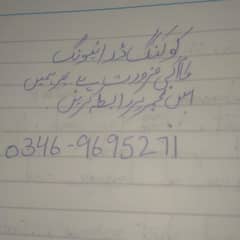 کوکنگ ڈرائیونگ
کی ضرورت ہے ہمیں
اس نمبر پر رابطہ کریں
0346-9695271